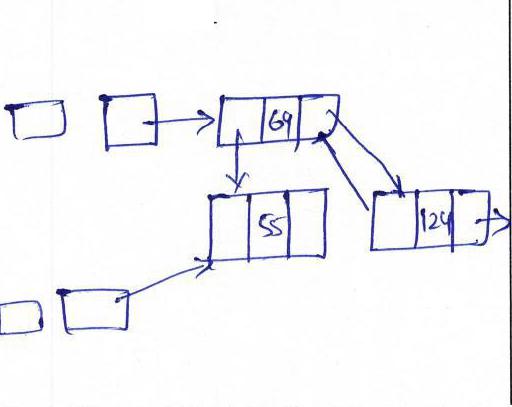 69
55
124